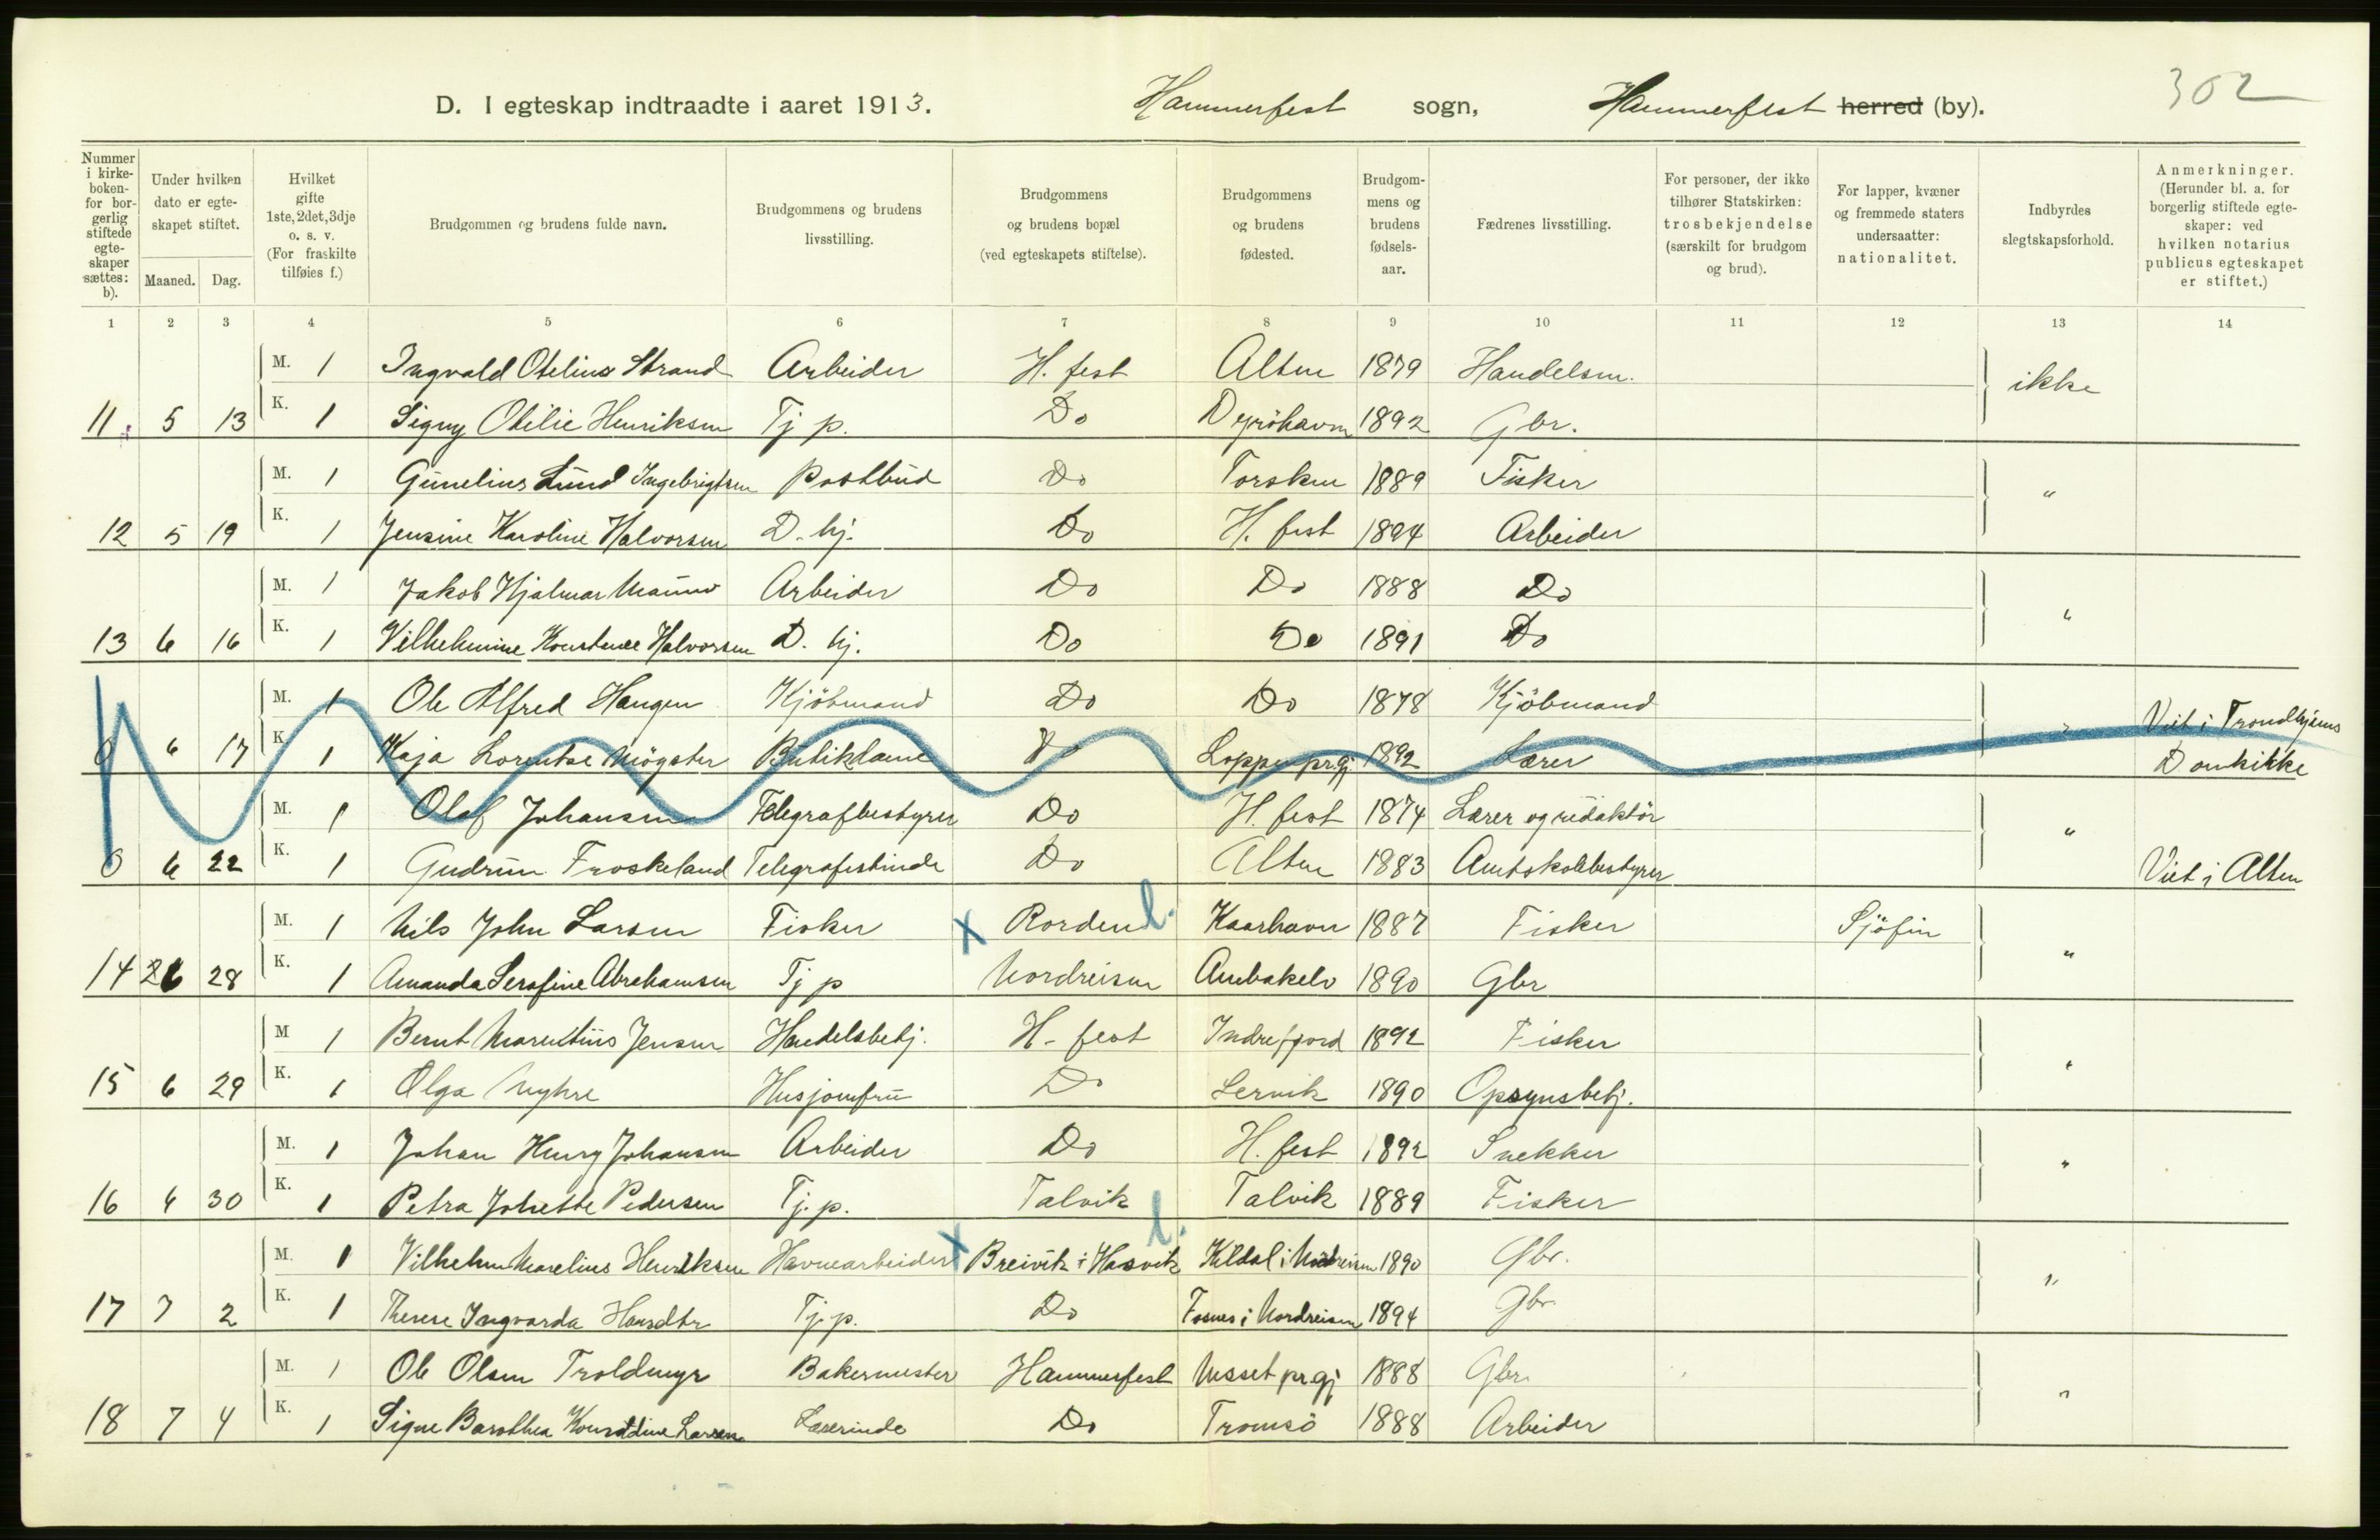 302
D. I egteskap indtraadte i aaret 1913. Hammerfest sogn, Hammerfest herred (by).
Nummer i kirkeboken- for borgerlig stiftede egteskaper sættes: b).
Under hvilken dato er egteskapet stiftet.
Maaned. Dag.
Hvilket gifte 1ste, 2det, 3dje o. s. v. (For fraskilte tilføies f.)
Brudgommen og brudens fulde navn.
Brudgommens og brudens livsstilling.
Brudgommens og brudens bopæl (ved egteskapets stiftelse).
Brudgommens og brudens fødested.
Brudgommens og brudens fødselsaar.
Fædrenes livsstilling.
For personer, der ikke tilhører Statskirken: trosbekjendelse (særskilt for brudgom og brud).
For lapper, kvæner og fremmede staters undersaatter: nationalitet.
Indbyrdes slegtskapsforhold.
Anmerkninger. (Herunder bl. a. for borgerlig stiftede egteskaper: ved hvilken notarius publicus egteskapet er stiftet.)
1 2 3 4 5 6 7 8 9 10 11 12 13 14
M. 1 Ingvald Otelius Strand Arbeider H. fest Alten 1879 Handelsm. ikke
11. 5 13 K. 1 Signy Otilie Henriksen Tj p. Do Dyröhavn 1892 Gbr.
M. 1 Gunelius Lund Ingebrigtsen Postbud Do Torsken 1889 Fisker "
12 5 19 K. 1 Jensine Karoline Halvorsen D. hj. Do H. fest 1894 Arbeider
M. 1 Jakob Hjalmar Arbeider Do Do 1888 Do "
13 6 16 K. 1 Vilhelmine Konstance Halvorsen D. hj. Do Do 1891 Do
M. 1 Ole Alfred Haugen Kjöbmand Do Do 1878 Kjöbmand " Viet i Trondhjems
0 6 17 K. 1 Kaja Lorentse Mögster Butikdame Do Loppen pr.gj. 1892 Lærer Domkirke
M. 1 Olaf Johansen Telegrafbestyrer Do H. fest 1874 Lærer og redaktör "
0 6 22 K. 1 Gudrun Froskeland Telegrafistinde Do Alten 1883 Amtskolebestyrer Viet i Alten
M. 1 Nils John Larsen Fisker x l. Kaarhavn 1887 Fisker Sjöfin "
14 6 28 K. 1 Amanda Serafine Abrahamsen Tj p Nordreisen 1890 Gbr
M 1 Bernt Marentius Jensen Handelsbetj. H- fest Indrefjord 1892 Fisker "
15 6 29 K. 1 Olga Myhre Husjomfru Do Lervik 1890 Opsynsbetj.
M. 1 Johan Henry Johansen Arbeider Do H. fest 1892 Snekker "
16 6 30 K. 1 Petra Johette Pedersen Tj. p. Talvik Talvik 1889 Fisker
M. 1 Vilhelm Marelius Henriksen Havnearbeider x Breivik i Hasvik l. Kildal i Nordreisen 1890 Gbr. "
17 7 2 K. 1 Therese Ingvarda Hansdtr Tj. p. Do i Nordreisen 1894 Gbr.
M. 1 Ole Olsen Troldmyr Bakermester Hammerfest Nesset pr.gj 1888 Gbr. "
18 7 4 K. 1 Signe Larsen Lærerinde Do Tromsö 1888 Arbeider